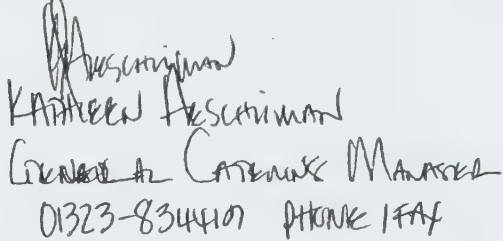 Aeschliman
KATHLEEN AESCHLIMAN
GENERAL CATERING MANAGER
01323-834410 PHONE / FAX